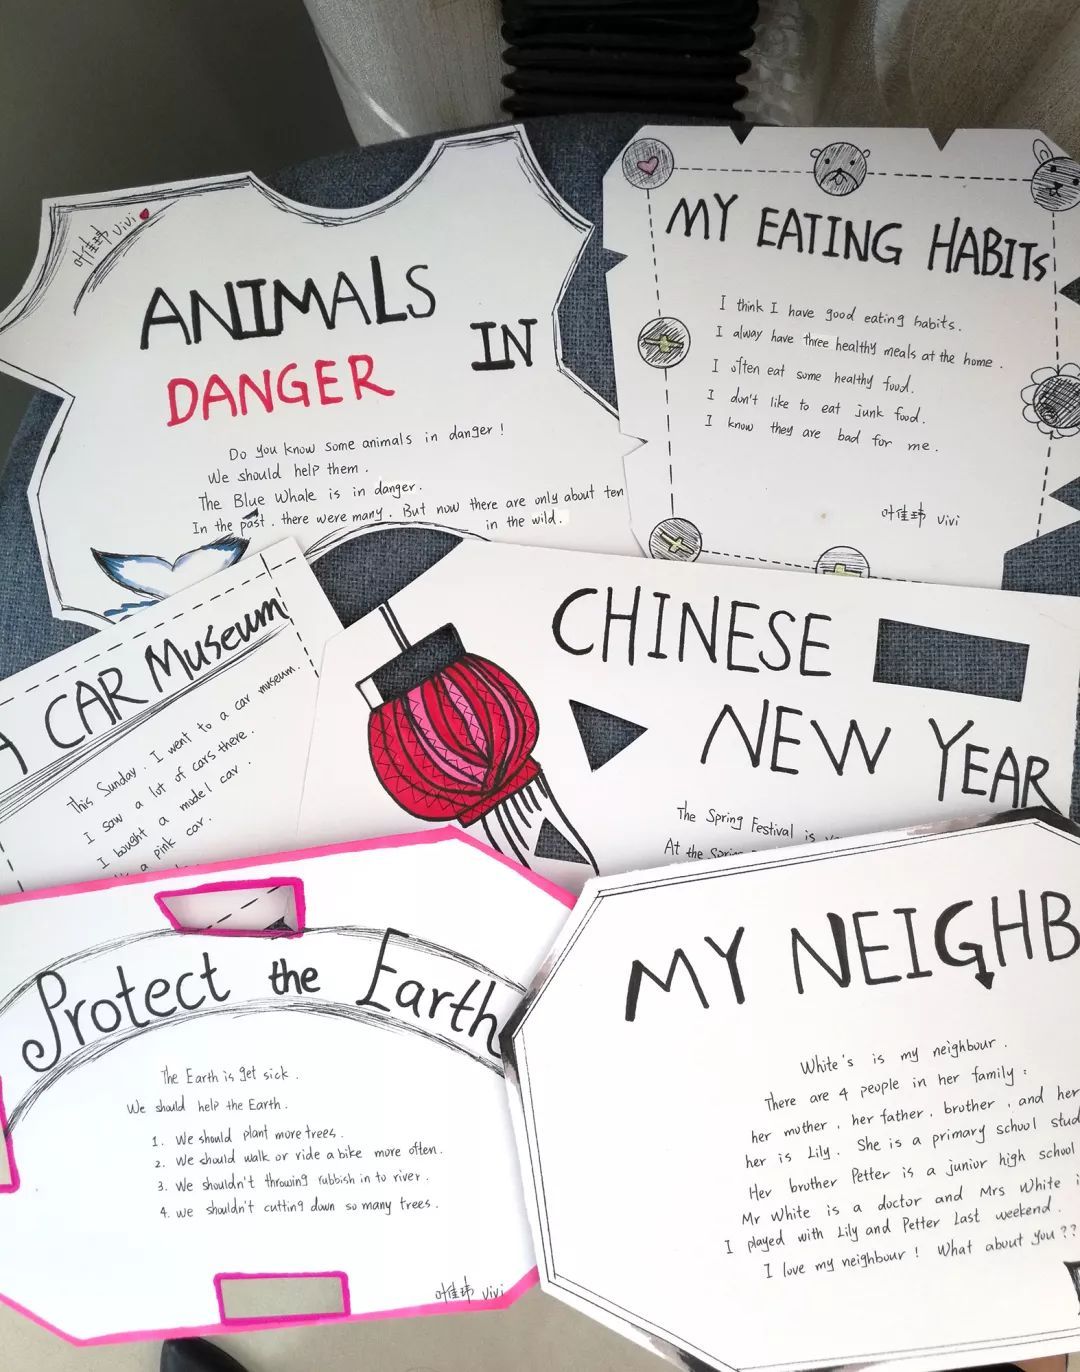 叶佳玮 vivi
ANIMALS
IN
DANGER
Do you know some animals in danger !
We should help them .
The Blue Whale is in danger.
In the past . there were many . But now there are only about ten
in the wild.
MY EATING HABITS
I think I have good eating habits .
I alway have three healthy meals at the home .
I often eat some healthy food.
I don't like to eat junk food.
I know they are bad for me .
叶佳玮 vivi
A CAR Museum
This Sunday . I went to a car museum.
I saw a lot of cars there .
I bought a model car .
a pink car.
CHINESE
NEW YEAR
The Spring Festival is
At the
Protect the Earth
The Earth is get sick .
We should help the Earth .
1. We should plant more trees .
2. We should walk or ride a bike more often.
3. We shouldn't throwing rubbish in to river .
4. we shouldn't cutting down so many trees .
叶佳玮 vivi
MY NEIGHB
White's is my neighbour .
There are 4 people in her family :
her mother , her father . brother , and her
her is Lily . She is a primary school stud
Her brother Petter is a junior high school
Mr White is a doctor and Mrs White
I played with Lily and Petter Last weekend .
I love my neighbour ! What about you ??